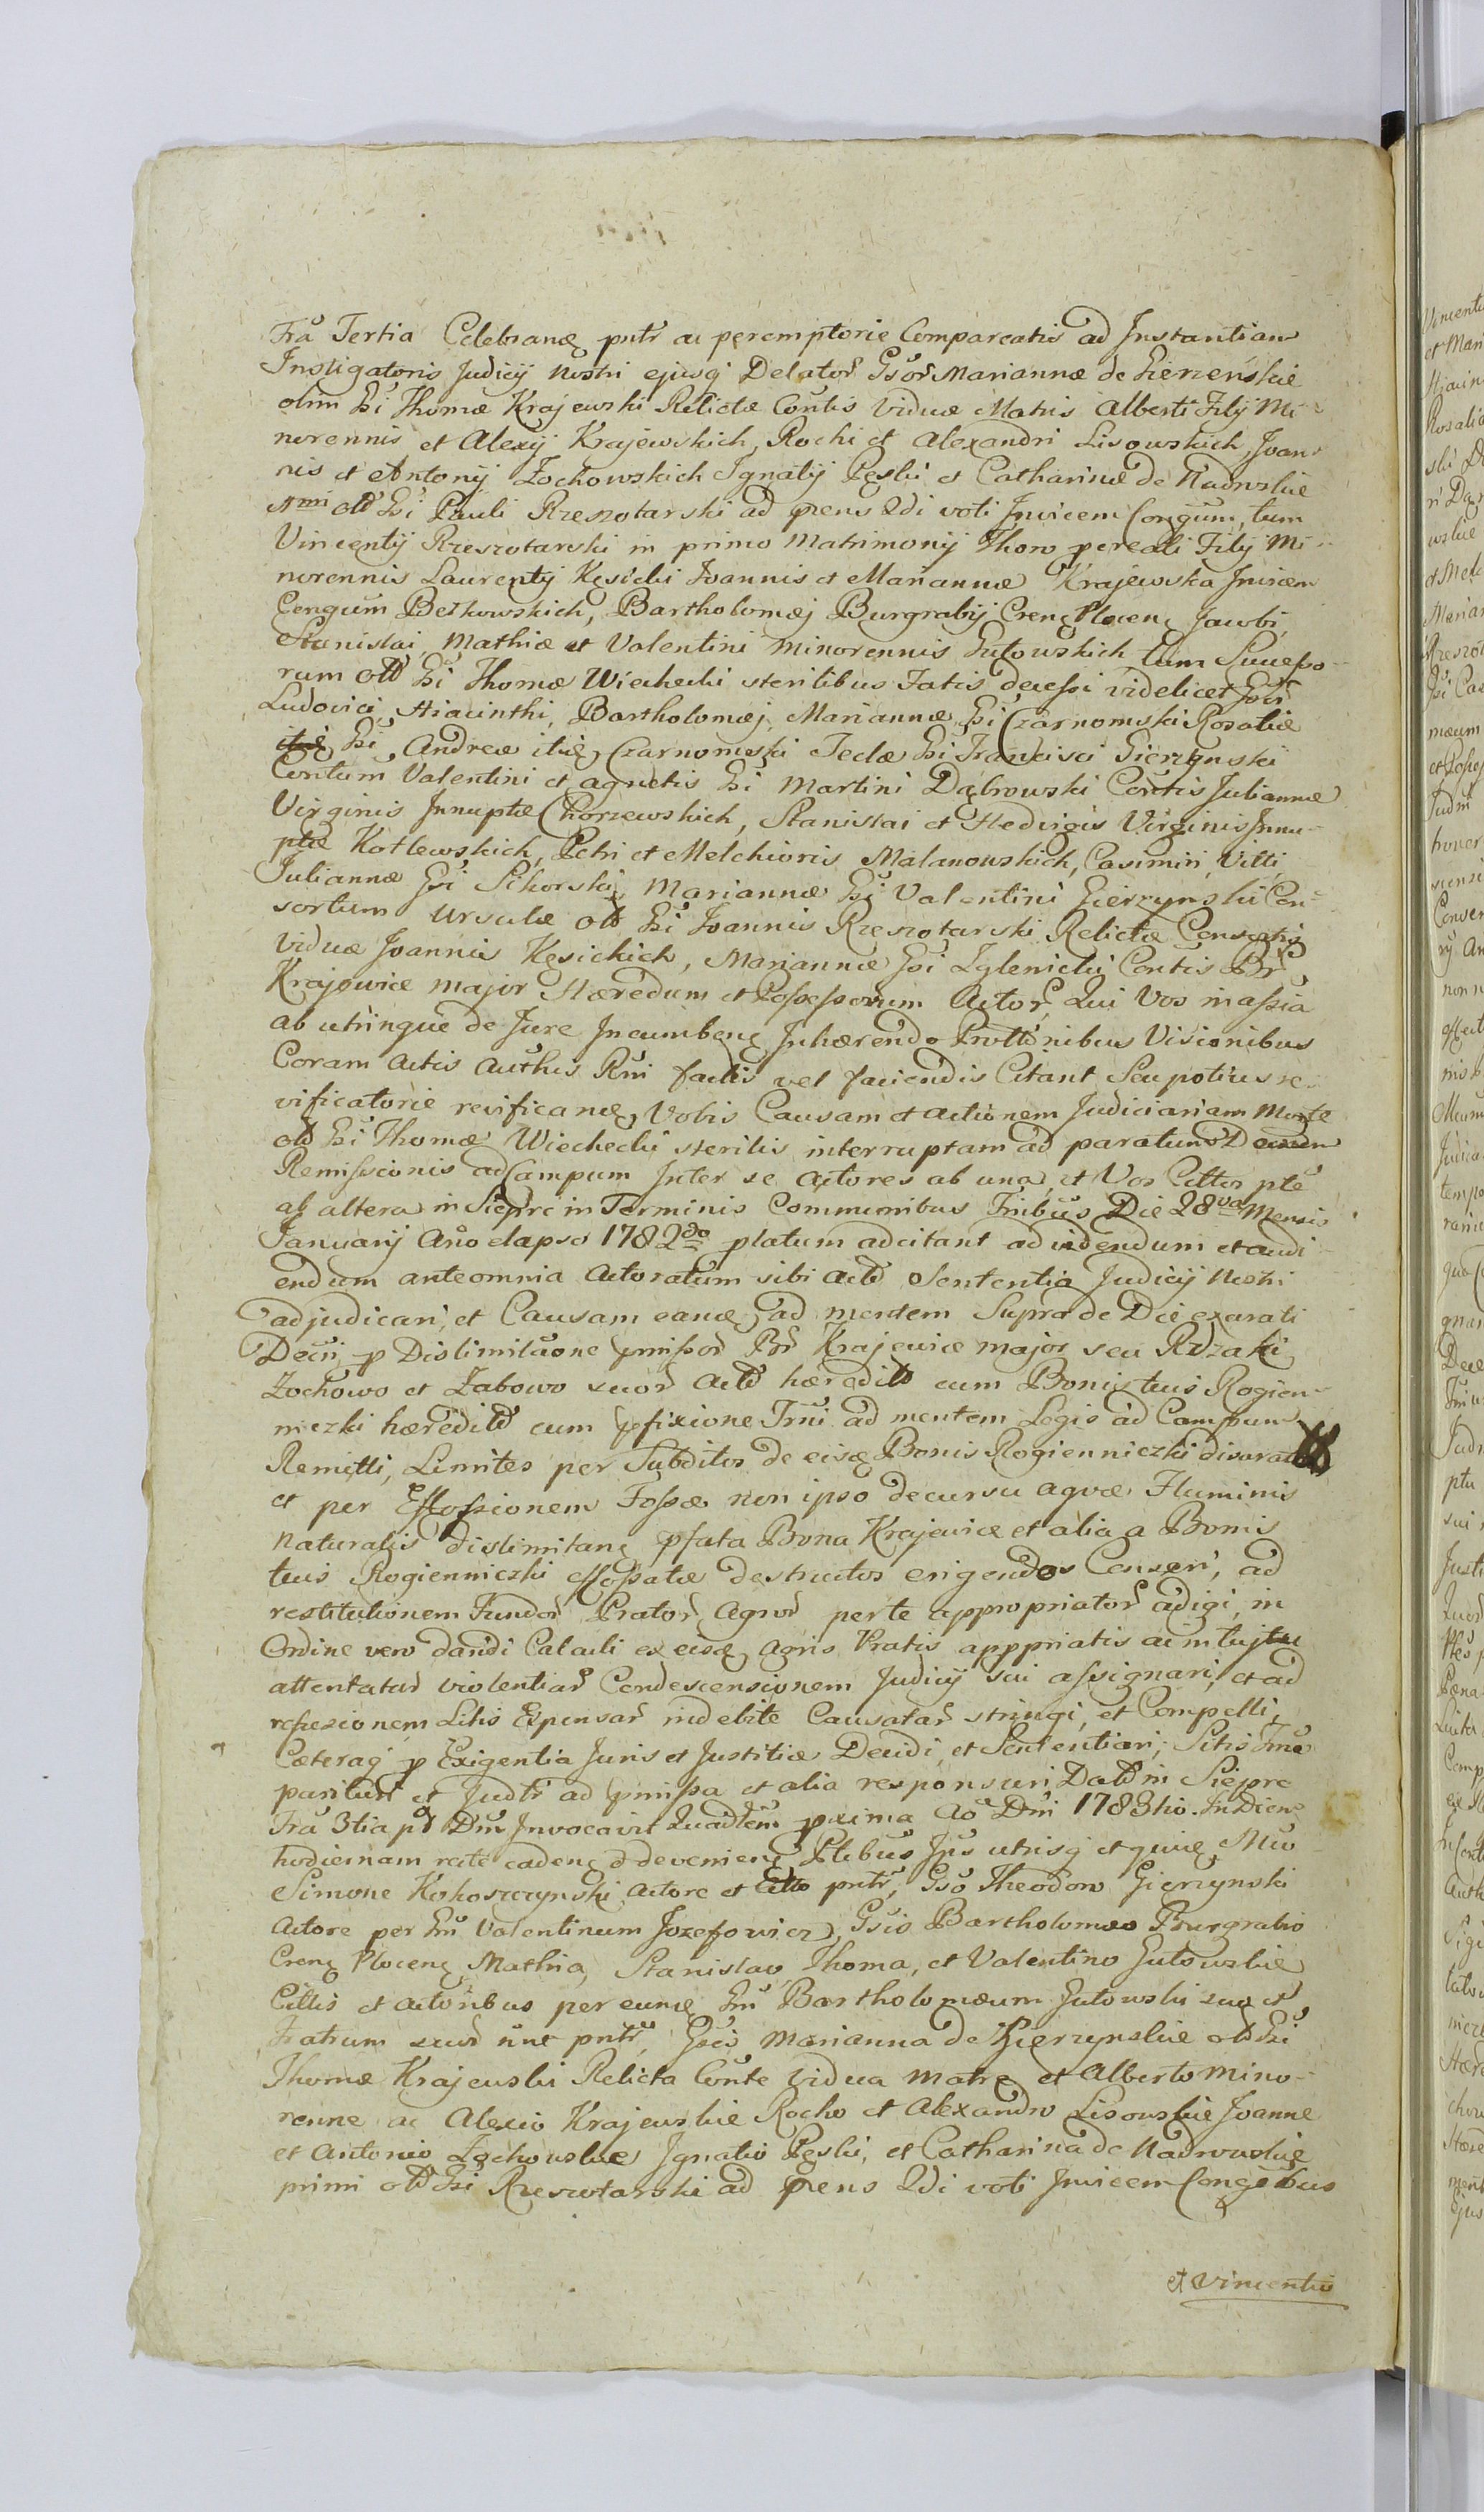 Fra Tertia Celebranę pntr ac peremptorie Compareatis ad Instantiam
Instigatoris Judicij Nostri ejusq Delator Gsor Mariannæ de Gierzeńskie
olim Gsi Thomæ Krajewski Relictæ Contis Viduæ Matris Alberti Filij Mi-
norennis et Alexij Krajewskich, Rochi et Alexandri Lisowskich, Joan-
nis et Antonij Żochowskich Ignatij Pęski et Catharinæ de Nadrwskie
1mi olt Gsi Pauli Rzeszotarski ad præns 2di voti Invicem Congum, tum
Vincentij Rzeszotarski in primo Matrimonij Thoro pcreati Filij Mi-
norennis Laurentij Kęsicki Joannis et Mariannæ Krajewska Invicem
Congum Betkowskich, Bartholomæj Burgrabij Crenę Plocenę Jacobi,
Stanislai, Mathiæ et Valentini Minorennis Gutowskich tum Succeßo-
rum olt Gsi Thomæ Wiechecki sterilibus Fatis deceßi videlicet Gsor
Ludovici Hiacinthi, Bartholomæj, Mariannæ Gsi Czarnomski Rosaliæ
Gsi Andreæ itię Czarnomski Teclæ Gsi Francisci Gierzynski
Contum Valentini et Agnetis Gsi Martini Dąbrowski Contis Juliannæ
Virginis Innuptæ Chorzewskich, Stanislai et Hedvigis Virginis Innu-
ptæ Kotlewskich, Petri et Melchioris Malanowskich, Casimiri, Vitti,
Juliannæ Gsi Sikorski, Mariannæ Gsi Valentini Gierzynski Con-
sortum Ursulæ olt Gsi Joannis Rzeszotarski Relictæ Consortis
Viduæ Joannis Kęsickich, Mariannæ Gsi Zglenicki Contis Br
Krajowice Major Hæredum et Poßeßorum Actor, Qui Vos in aßia
ab utrinque de Jure Incumbenę Inhærendo Prottonibus Visionibus
Coram Actis Authis Rni factis vel faciendis Citant Seu potius re-
vificatorie revificanę, Vobis Causam et Actionem Judiciariam Morte
olt Gsi Thomæ Wiechecki sterilis interruptam ad paratum
Remißionis ad Campum Inter se Actores ab una, et Vos Cittos pte
ab altera in Sieprc in Terminis Communibus Fribus Die 28va Mensis
Januarij Ano elapso 1782do platum adcitant ad videndum et audi-
endum anteomnia Actoratum sibi Actt Sententia Judicij Nostri
adjudicari, et Causam eanę, ad mentem Supra de Die exarati
Decri, p Dislimitaone pmißor Br Krajewice major seu Rdzaki
Żochowo et Zabowo suor Actt hæreditt cum Bonis tuis Rogien-
niczki hæreditt cum pfixione Trni ad mentem Legis ad Campum
Remitti, Limites per Subditos de eisę Bonis Rogienniczki
et per Effoßionem Foßæ non ipso decursu aqvæ Fluminis
naturalis dislimitanę pfata Bona Krajewice et alia a Bonis
tuis Rogienniczki effoßatæ destructos erigendos Censeri, ad
restitutionem Fundor Prator Agror per te appropriator adigi, in
Ordine vero dandi Calculi ex eisę Agris Pratis apppriatis ac
attentatar violentiar Condescensionem Judicij sui aßignari, et ad
refusionem Litis Expensar indebite Causatar stringi, et Compelli,
Cæteraq p Exigentia Juris et Justitiæ Decidi, et Sententiari; Sitis Trno
parituri et Judtr ad pmißa et alia responsuri Datt in Sieprc
Fra 3tia pd Dm Invocavit Quadlem pxima Ao Dni 1783tio. In Diem
hodiernam recte cadenę et devenienę Ptibus Ips utrisq et quię Mco
Simone Kokoszczynski Actore et pntr, Gso Theodoro Gierzynski
Actore per Gm Valentinum Jozefowicz, Gsis Bartholomæo Burgrabio
Crenę Plocenę Mathia, Stanislao, Thoma, et Valentino Gutowskie
Cittis et Actoribus per eunę Gm Bartholomæum Gutowski suo et
Fratrum suor nne pntr, Gsis Marianna de Gierzynskie olt Gsi
Thomæ Krajewski Relicta Conte Vidua Matre et Alberto Mino-
renne ac Alexio Krajewskie Rocho et Alexandro Lisowskie Joanne
et Antonio Żochowskie Ignatio Pęski, et Catharina de Nadrowskie
primi olt Gsi Rzeszotarski ad præns 2di voti Invicem Congebus
et Vincentio